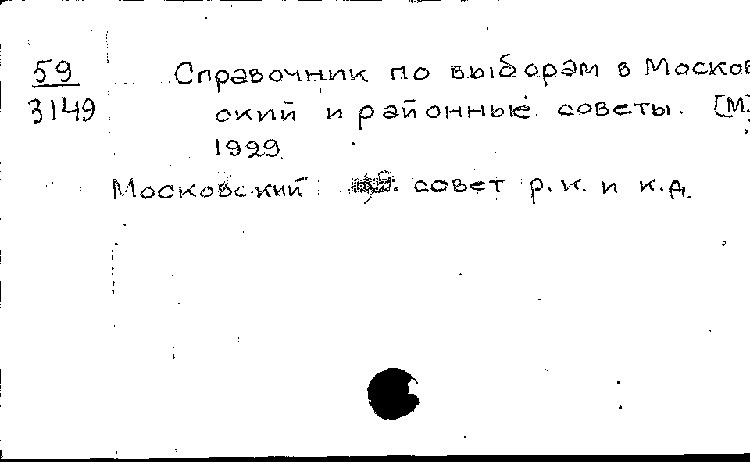 59
3149
Справочник по выборам в Москов
ский и районные советы. [М]
1929.
Московский совет р.к. и к.д.